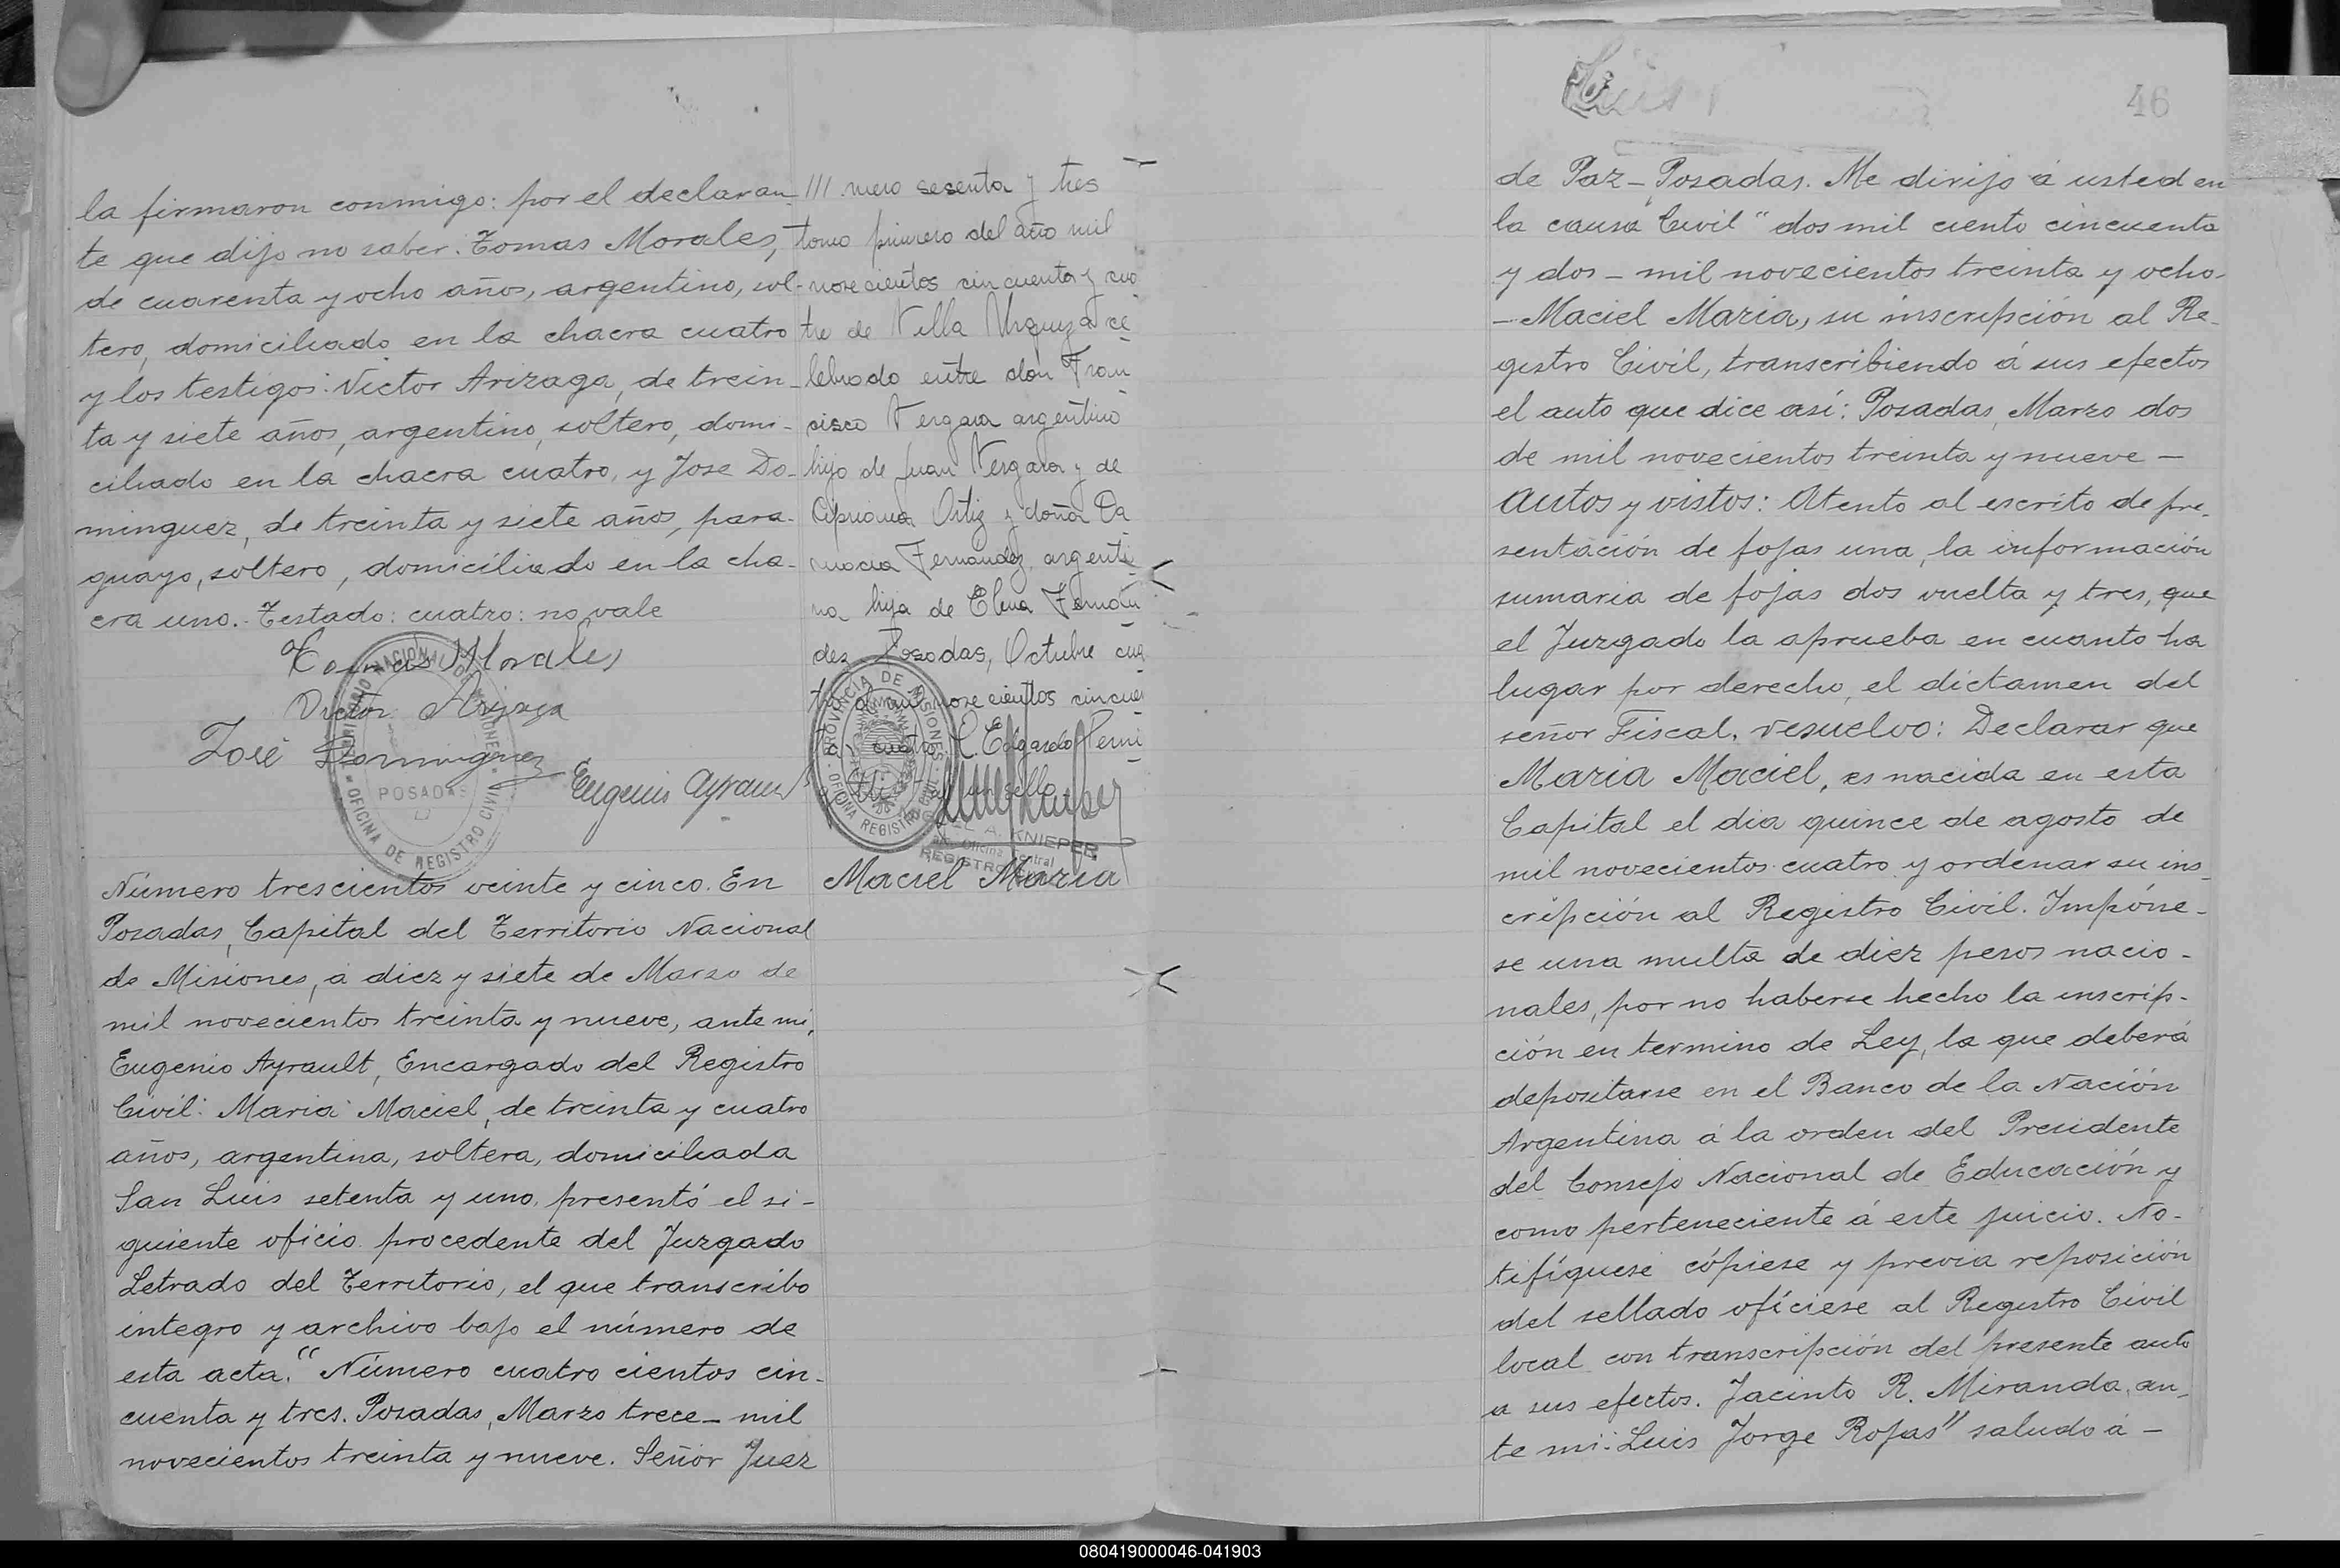 la firmaron conmigo: por el declaran-
te que dijo no saber: Tomas Morales,
de cuarenta y ocho años, argentino, sol-
tero, domiciliado en la chacra cuatro
y los testigos: Victor Arizaga, de trein-
ta y siete años, argentino, soltero, domi-
ciliado en la chacra cuatro, y Jose Do-
minguez, de treinta y siete años, para-
guayo, soltero, domiciliado en la cha-
cra uno. Testado: cuatro: no vale
Tomas Morales
Victor Arizaga
José Dominguez
Eugenio Ayrault
TERRITORIO NACIONAL DE MISIONES
POSADAS
OFICINA DE REGISTRO CIVIL
Número trescientos veinte y cinco. En
Posadas, Capital del Territorio Nacional
de Misiones, a diez y siete de Marzo de
mil novecientos treinta y nueve, ante mi,
Eugenio Ayrault, Encargado del Registro
Civil: Maria Maciel, de treinta y cuatro
años, argentina, soltera, domiciliada
San Luis setenta y uno, presentó el si-
guiente oficio procedente del Juzgado
Letrado del Territorio, el que transcribo
integro y archivo bajo el número de
esta acta. "Número cuatro cientos cin-
cuenta y tres. Posadas, Marzo trece - mil
novecientos treinta y nueve. Señor Juez
/// mero sesenta y tres
tomo primero del año mil
novecientos cincuenta y cua
tro de Villa Urquiza ce
lebrado entre don Fran
cisco Vergara argentino
hijo de Juan Vergara y de
Cipriana Ortiz y doña Da
macia Fernandez, argenti
na hija de Elena Fernán
dez Posadas, Octubre cua
tro de mil novecientos cincuen
ta y cuatro. E. Edgardo
un sello
PROVINCIA DE MISIONES
OFICINA REGISTRO CIVIL
A. KNIEPER
Oficina Central
REGISTRO
Maciel Maria
46
de Paz - Posadas. Me dirijo á usted en
la causa "Civil" dos mil ciento cincuenta
y dos - mil novecientos treinta y ocho-
- Maciel Maria, su inscripción al Re-
gistro Civil, transcribiendo á sus efectos
el auto que dice así: Posadas, Marzo dos
de mil novecientos treinta y nueve -
Autos y vistos: Atento al escrito de pre-
sentación de fojas una, la información
sumaria de fojas dos vuelta y tres, que
el Juzgado la aprueba en cuanto ha
lugar por derecho, el dictamen del
señor Fiscal, resuelvo: Declarar que
Maria Maciel, es nacida en esta
Capital el dia quince de agosto de
mil novecientos cuatro y ordenar su ins-
cripción al Registro Civil. Impóne-
se una multa de diez pesos nacio-
nales, por no haberse hecho la inscrip-
ción en termino de Ley, la que deberá
depositarse en el Banco de la Nación
Argentina á la orden del Presidente
del Consejo Nacional de Educación y
como perteneciente á este juicio. No-
tifíquese cópiese y previa reposición
del sellado ofíciese al Registro Civil
local con transcripción del presente auto
a sus efectos. Jacinto R. Miranda, an-
te mi: Luis Jorge Rojas" saludo á -
080419000046-041903